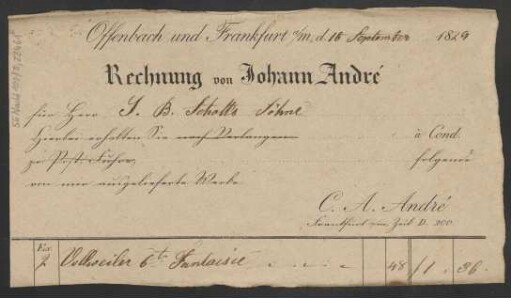 Offenbach und Frankfurt a/m, d. 15 September 1829
Rechnung von Johann André
für Herr J. B. Schotts Söhne
Hierbei erhalten Sie nach Verlangen à Cond.
zu Post-Fuhre folgende
von mir ausgelieferte Werke
C. A. André
Frankfurt a/m Zeil D. 200.
Ex:
2 Vollweiler 6te Fantaisie 48 / 1 . 36 .